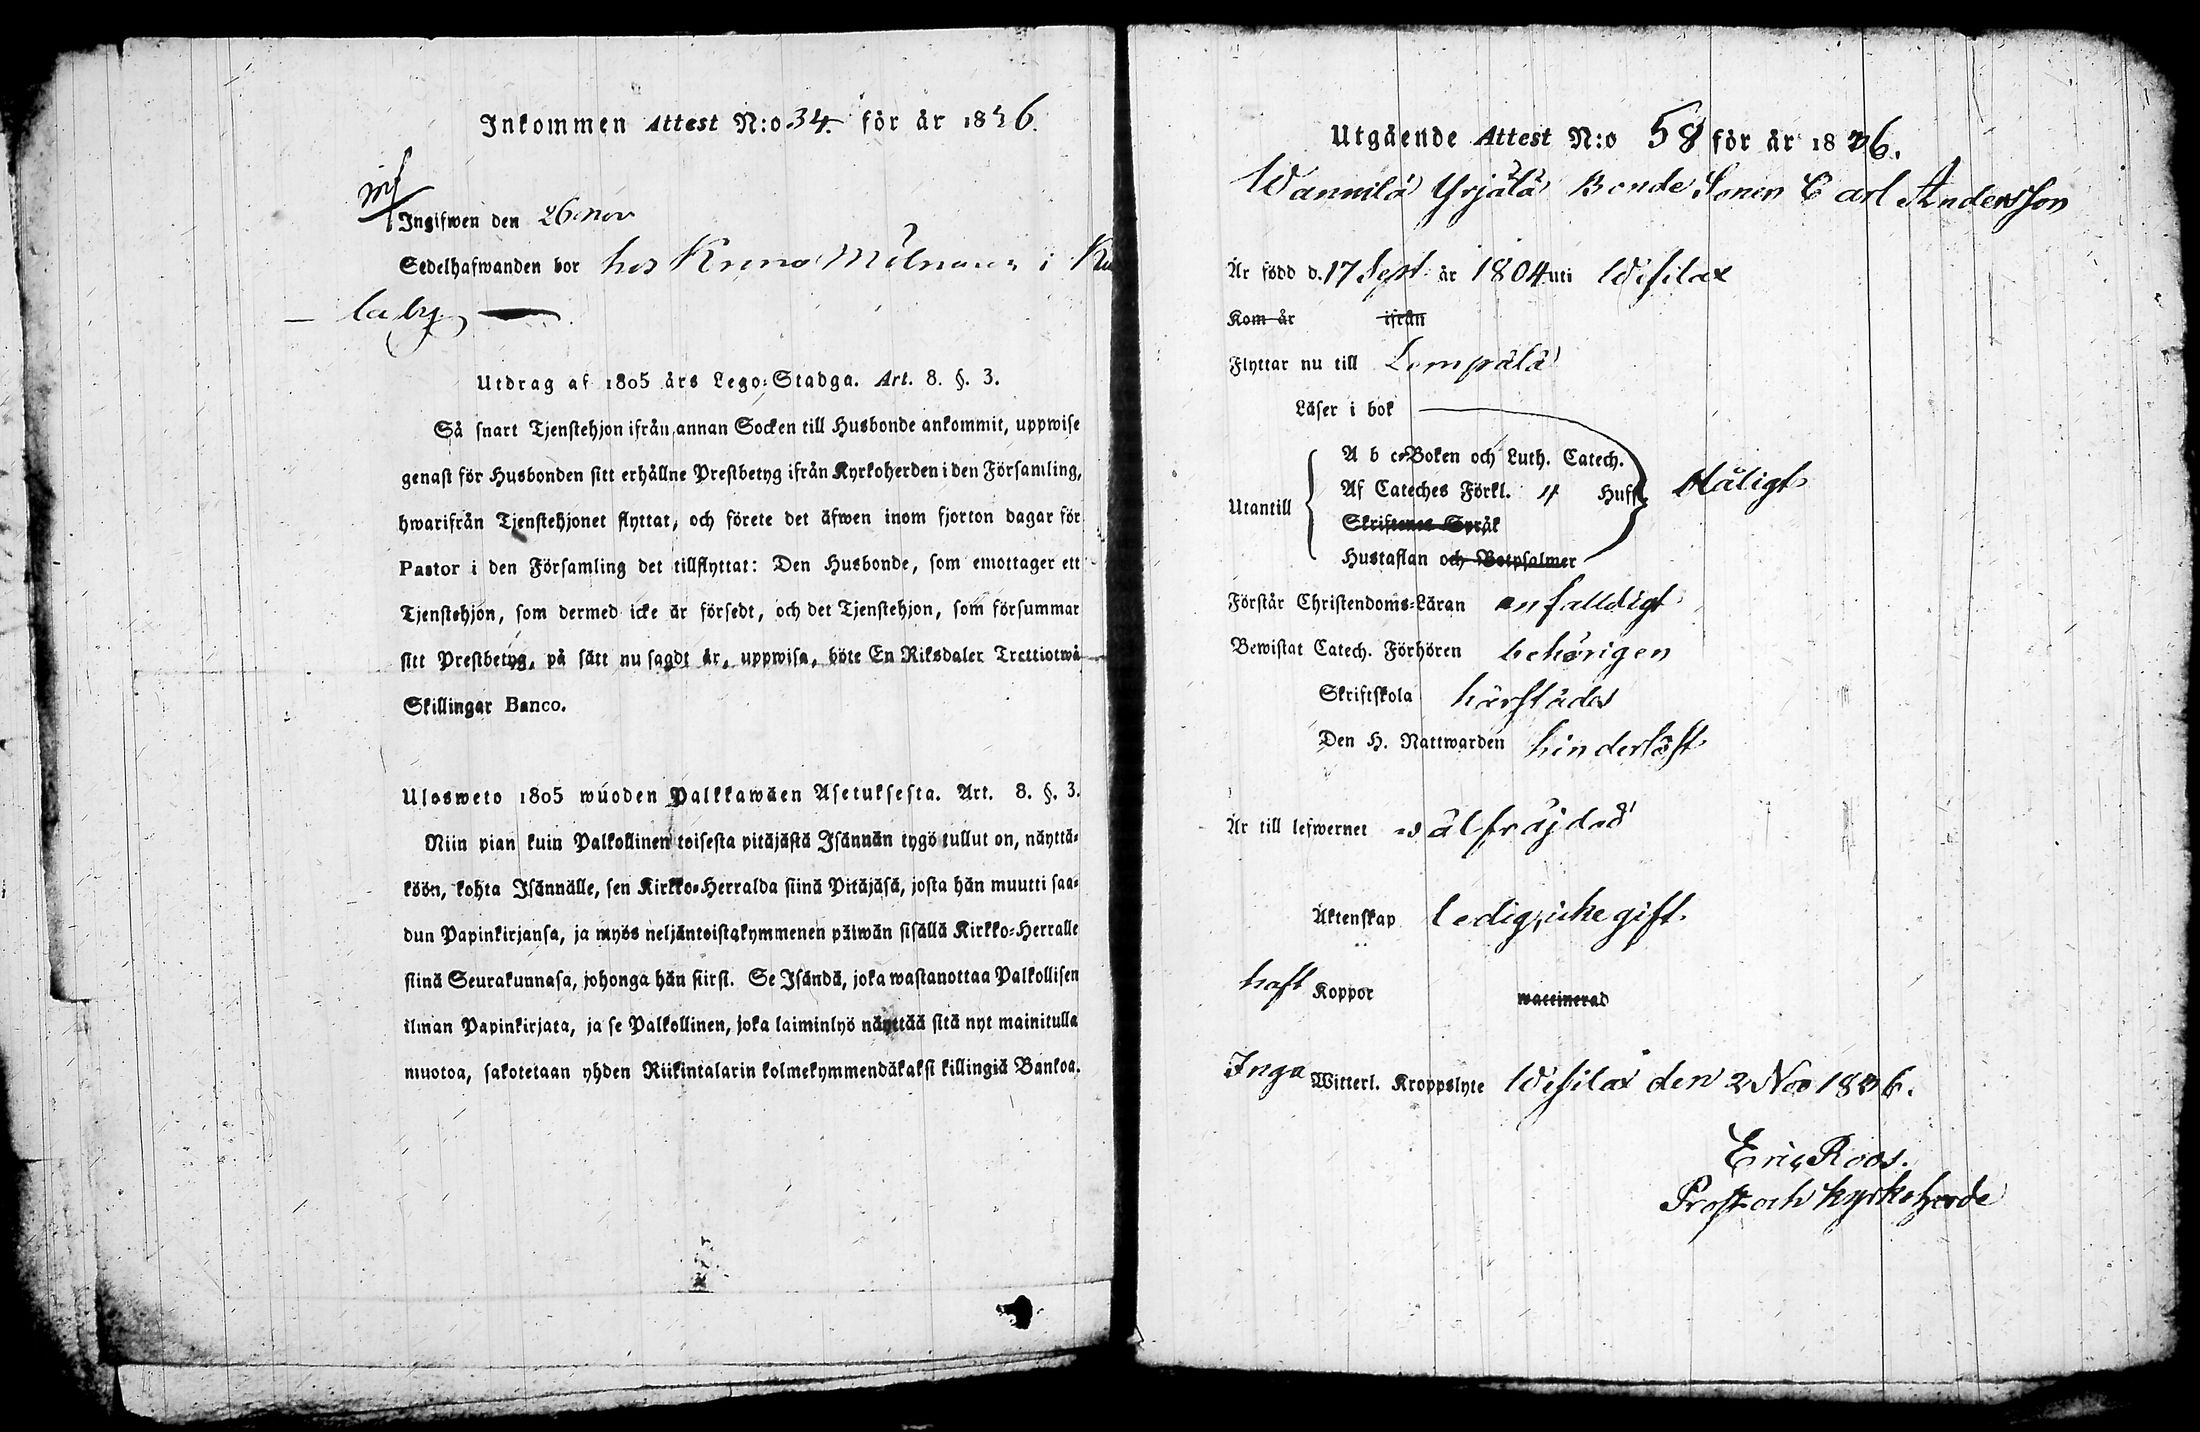 Inkommen Attest N:o 34. för år 1826.
Ingifwen den 26 nov
Sedelhafwanden bor hos
la by
Utdrag af 1805 års Lego-Stadga. Art. 8. §. 3.
Så snart Tjenstehjon ifrån annan Socken till Husbonde ankommit, uppwise
genast för Husbonden sitt erhållne Prestbetyg ifrån Kyrkoherden i den Församling,
hwarifrån Tjenstehjonet flyttat, och förete det äfwen inom fjorton dagar för
Pastor i den Församling det tillflyttat: Den Husbonde, som emottager ett
Tjenstehjon, som dermed icke är försedt, och det Tjenstehjon, som försummar
sitt Prestbetyg, på sätt nu sagdt är, uppwisa, böte En Riksdaler Trettiotwå
Skillingar Banco.
Ulosweto 1805 wuoden Palkkawäen Asetuksesta. Art. 8. §. 3.
Niin pian kuin Palkollinen toisesta pitäjästä Isännän tygö tullut on, näyttä-
köön, kohta Isännälle, sen Kirkko-Herralda siinä Pitäjäsä, josta hän muutti saa-
dun Papinkirjansa, ja myös neljäntoistakymmenen päiwän sisällä Kirkko-Herralle
siinä Seurakunnasa, johonga hän siirsi. Se Isändä, joka wastanottaa Palkollisen
ilman Papinkirjata, ja se Palkollinen, joka laiminlyö näyttää sitä nyt mainitulla
muotoa, sakotetaan yhden Riikintalarin kolmekymmendäkaksi killingiä Bankoa.
Utgående Attest N:o 58 för år 1826.
Wannilä Yrjälä Bonde Sonen Carl Andersson
Är född d. 17 Sept. år 1804 uti Wesilax
Kom år ifrån
Flyttar nu till Lempälä
Läser i bok
A b c-Boken och Luth. Catech.
Af Cateches Förkl. 4 Huft
Utantill
dåligt
Skriftenes Språk
Hustaflan och Botpsalmer
Förstår Christendoms-Läran enfalldigt
Bewistat Catech. Förhören behörigen
Skriftskola härstädes
Den H. Nattwarden hinderlöst
Är till lefwernet wälfräjdad
Äktenskap ledig, icke gift.
haft Koppor waccinerad
Inga Witterl. Kroppslyte Wesilax den 2 Nov 1826.
Eric Roos.
Prost och Kyrkoherde